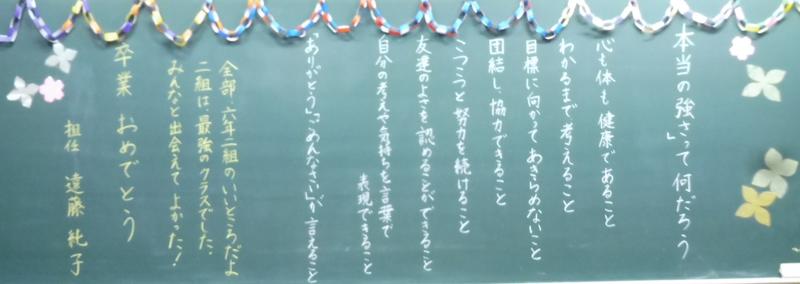 本当の「強さ」って何だろう
心も体も健康であること
わかるまで考えること
目標に向かってあきらめないこと
団結し、協力できること
こつこつと努力を続けること
友達のよさを認めることができること
自分の考えや気持ちを言葉で
表現できること
「ありがとう」「ごめんなさい」が言えること
全部、六年二組のいいところだよ
二組は、最強のクラスでした。
みんなと出会えてよかった！
卒業おめでとう
担任 遠藤純子